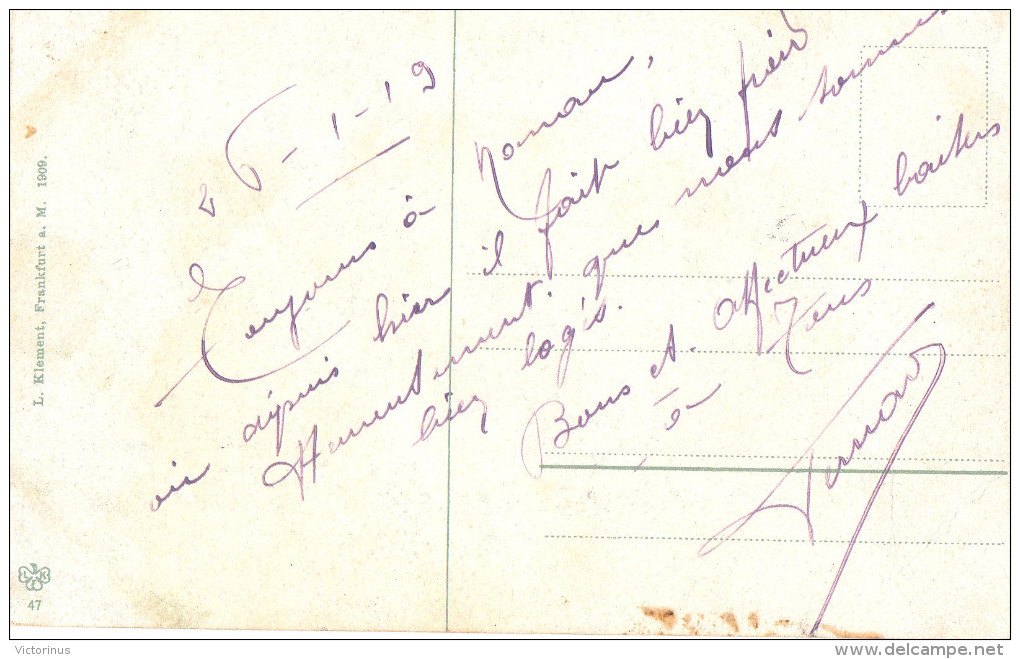 26-1-19
Toujours à Hanau,
depuis hier il fait bien froid
Heureusement que nous sommes
bien logés.
Bons et affectueux baisers
à Tous
Fernand
L. Klement, Frankfurt a. M. 1909.
47
Victorinus
delcampe.net